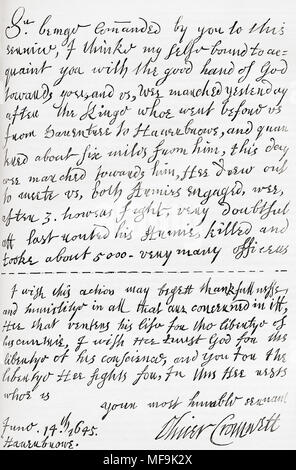 Sr. beinge comãnded by you to this
service, I thinke my selfe bound to ac-
quaint you with the good hand of God
towards you and vs, wee marched yesterday
after the Kinge whoe went before vs
from Dauentree to Hauerbrowe, and quar
tered about six miles from him, this day
wee marched towards him, Hee drew out
to meete vs, both Armies engaged, wee,
after 3. howers fight, very doubtful
att last routed his Armie, killed and
tooke about 5000 - very many officers
I wish this action may begett thankfullnesse
and humilitye in all that are concerned in itt,
Hee that venters his life for the libertye of
his cuntrie, I wish Hee trust God for the
libertye of his conscience, and you for the
libertye Hee fights for, In this Hee rests
whoe is
your most humble servant
Oliver Cromwell
June. 14th 1645.
Hauerbrowe.
alamy
Image ID: MF9K2X
www.alamy.com